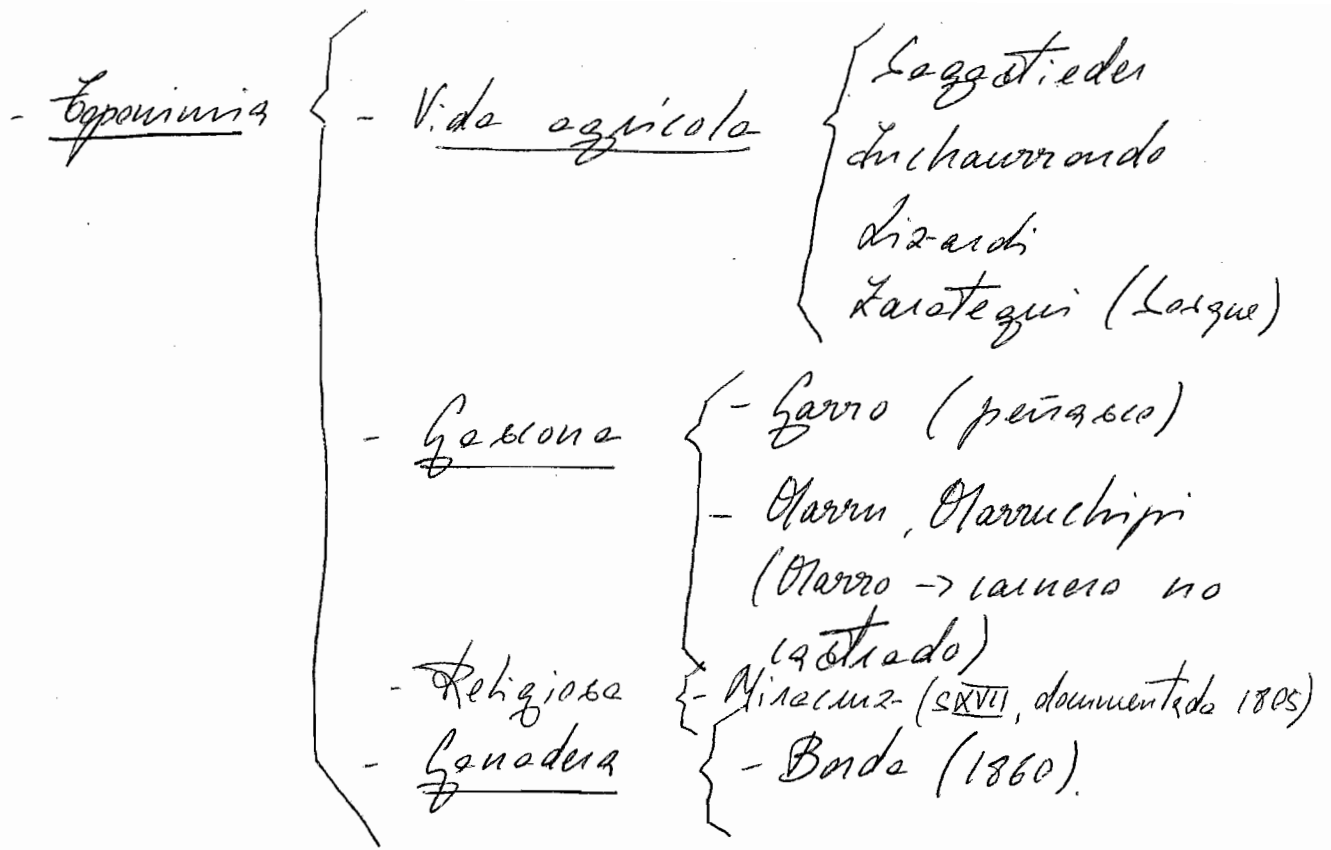 - Toponimia
- Vida agrícola
Sagastieder
Inchaurrondo
Lizardi
Zarategui (Bosque)
- Gascona
- Garro (peñasco)
- Marru, Marruchipi
(Marro -> carnero no
castrado)
- Religiosa
- Miracruz (SXVII, documentada 1805)
- Ganadera
- Borda (1860).